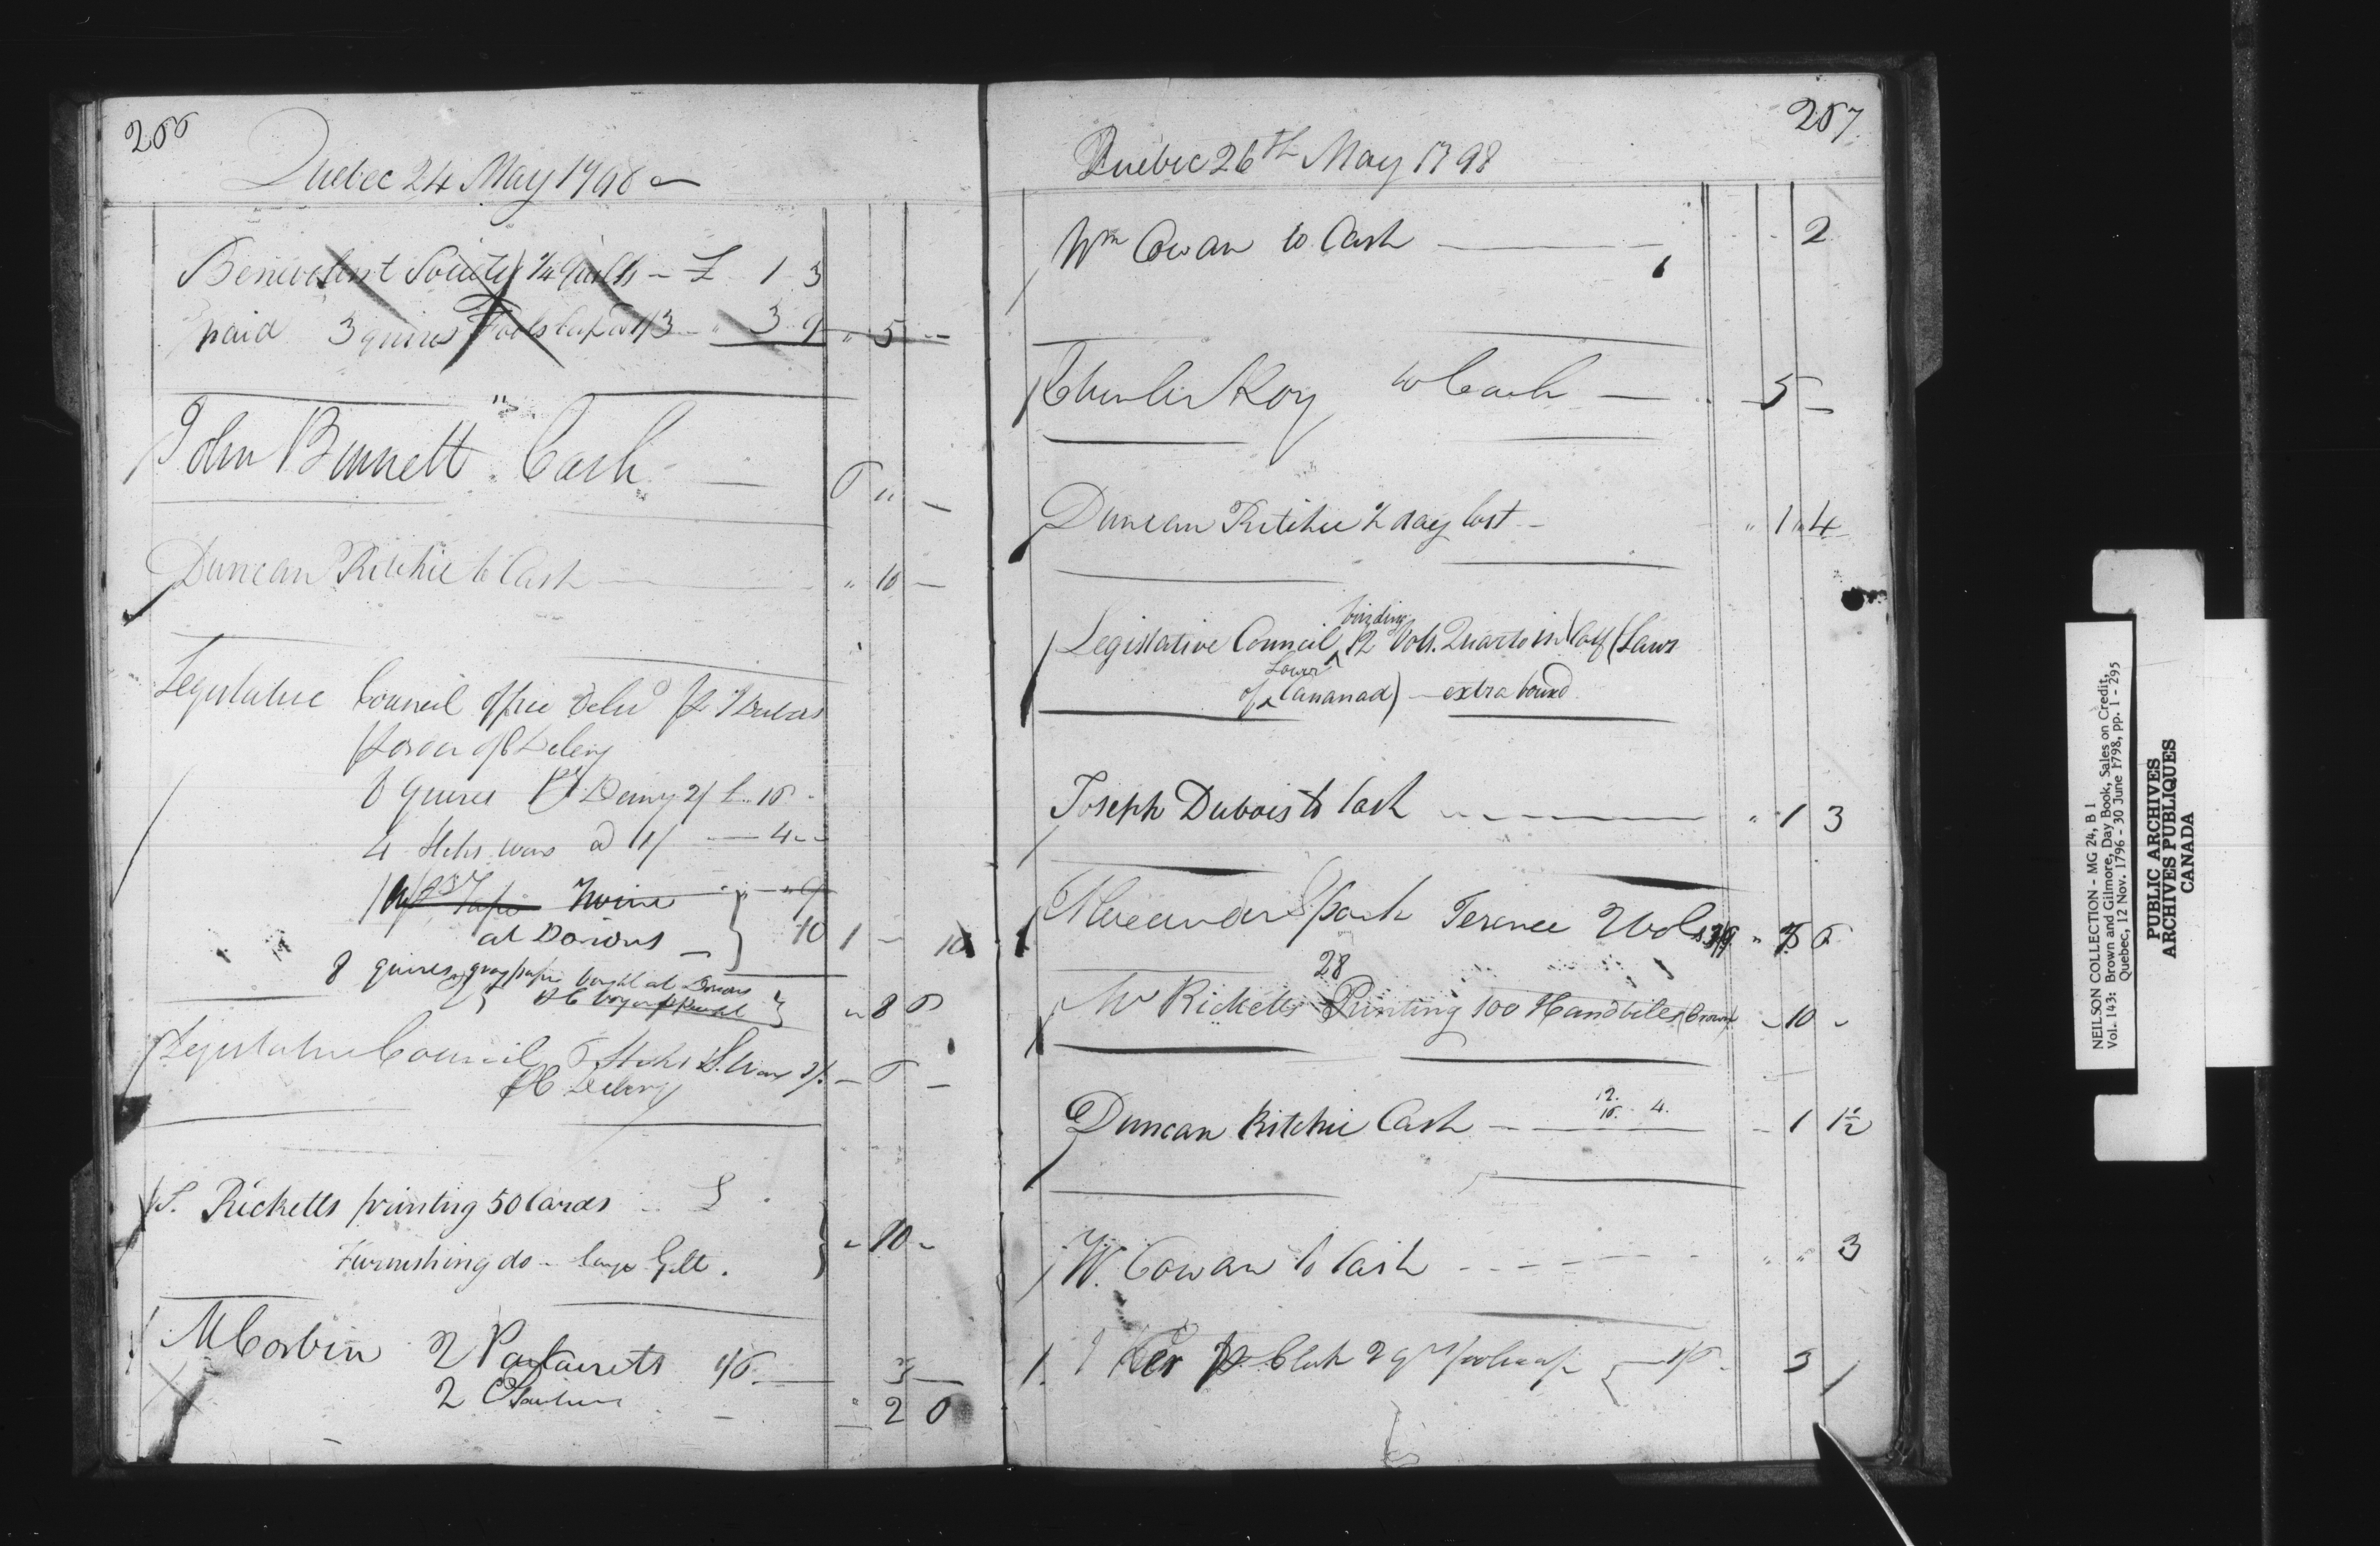 266
Quebec 24 May 1798
Benevolent Society 1/4 Quills - £ 1 3
paid 3 quires Foolscap @ 1/3 - " 3 9 " 5 -
John Bennett " Cash - 6 " -
Duncan Ritchie to Cash - " 10 -
Legislative Council office Deld
8 Quires Demy 2/ £ " 16 -
4 Sticks wax @ 1/ - 4 - -
Twine - " 9
at Dorions - 10 1 - 10
8 quires gray paper bought at Dorions
" 8 6
Legislative Council 6 Sticks S. Wax 1/ - 6 -
Delery
S. Ricketts printing 50 Cards £
Furnishing do - large Gilt. - 10 -
M Corbin 2 1/6 - 3 -
2 - " 2 6
267
Quebec 26th May 1798
Wm Cowan to Cash - 2
Charles Roy to Cash - 5 -
Duncan Ritchie ½ day lost - " 1 " 4
Legislative Council binding 12 Vols. Quarto in Calf (Laws
of Lower Cananad) - extra bound
Joseph Dubois to Cash - " 1 3
Alexander Spark Terence 2 Vols 3/9 " 7 6
28
Mr Ricketts Printing 100 Handbills (Crown) - 10 -
12.
10. 4.
Duncan Ritchie Cash - 1 1½
W. Cowan to Cash - " " 3
Ker 2 qrs foolscap 1/6 - 3
NEILSON COLLECTION - MG 24, B 1
Vol. 143: Brown and Gilmore, Day Book, Sales on Credit,
Quebec, 12 Nov. 1796 - 30 June 1798, pp. 1 - 295
PUBLIC ARCHIVES
ARCHIVES PUBLIQUES
CANADA